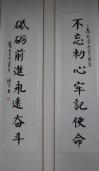 不忘初心牢記使命
砥礪前進永遠奮斗